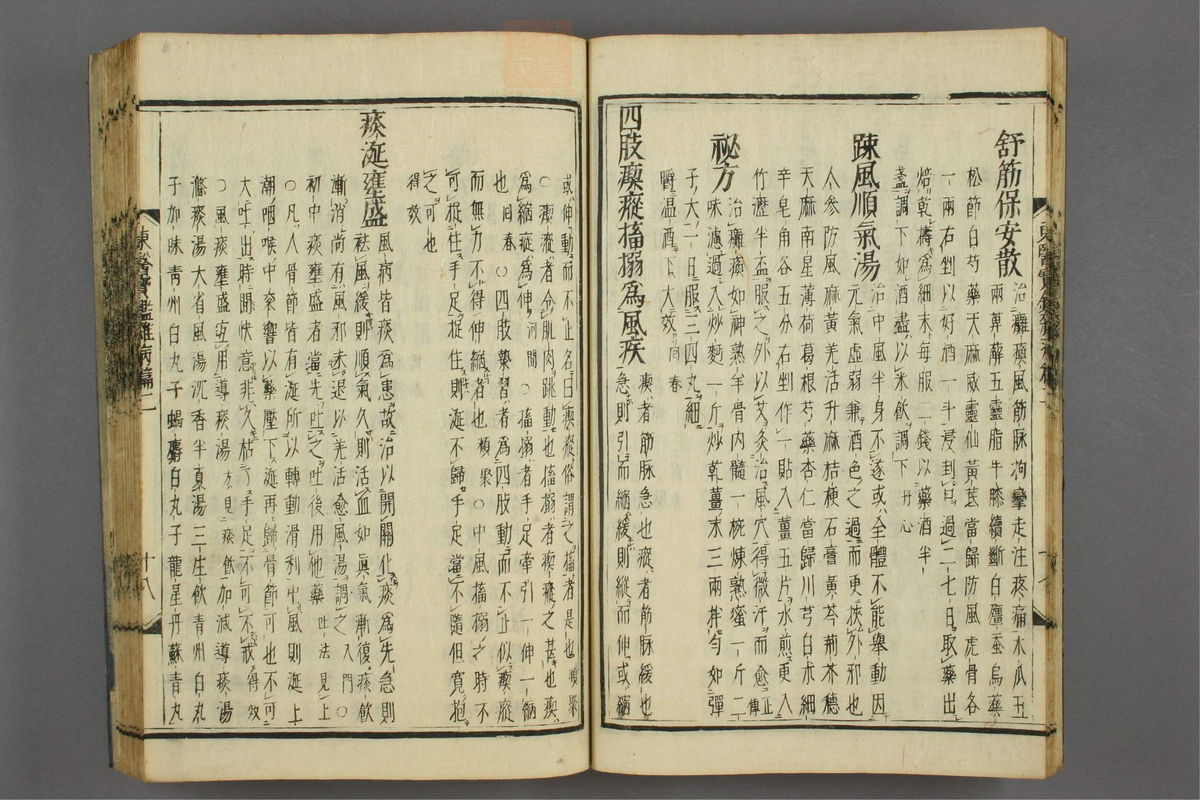 舒筋保安散
治癱瘓風筋脉拘攣走注疼痛木瓜五
兩萆薢五靈脂牛膝續斷白殭蚕烏藥
松節白芍藥天麻威靈仙黃茋當歸防風虎骨各
一兩右剉以好酒一斗浸封口過二七日取藥出
焙乾擣爲細末每服二錢以藥酒半
盞調下如酒盡以米飮調下丹心
踈風順氣湯
治中風半身不遂或全體不能擧動因
元氣虛弱兼酒色之過而更挾外邪也
人參防風麻黃羌活升麻桔梗石膏黃芩荊芥穗
天麻南星薄荷葛根芍藥杏仁當歸川芎白朮細
辛皂角各五分右剉作一貼入薑五片水煎更入
竹瀝半盃服之外以艾灸治風穴得微汗而愈正傳
祕方
治癱瘓如神熟羊骨內髓一椀煉熟蜜一斤二
味濾過入炒麪一斤炒乾薑末三兩拌勻如彈
子大一日服三四丸細
嚼溫酒下大效回春
四肢瘈瘲搐搦爲風疾
瘈者筋脉急也瘲者筋脉緩也
急則引而縮緩則縱而伸或縮
或伸動而不止名曰瘈瘲俗謂之搐者是也類聚
○瘈瘲者令肌肉跳動也搐搦者瘈瘲之甚也瘈
爲縮瘲爲伸河間○搐搦者手足牽引一伸一縮
也回春○四肢㩧習者爲四肢動而不止似瘈瘲
而無力不得伸縮者也類聚○中風搐搦之時不
可捉住手足捉住則涎不歸手足當不隨但寬抱
之可也
得效
痰涎壅盛
風病皆痰爲患故治以開關化痰爲先急則
袪風緩則順氣久則活血如眞氣漸復痰飮
漸消尙有風邪未退以羌活愈風湯調之入門○
初中痰壅盛者當先吐之吐後用他藥吐法見上
○凡人骨節皆有涎所以轉動滑利中風則涎上
潮咽喉中衮響以藥壓下涎再歸骨節可也不可
大吐出時間快意非久枯了手足不可不戒得效
○風痰壅盛宜用導痰湯方見痰飮加減導痰湯
滌痰湯大省風湯沉香半夏湯三生飮靑州白丸
子加味靑州白丸子蝎麝白丸子龍星丹蘇靑丸
東醫寶鑑雜病篇二
十八